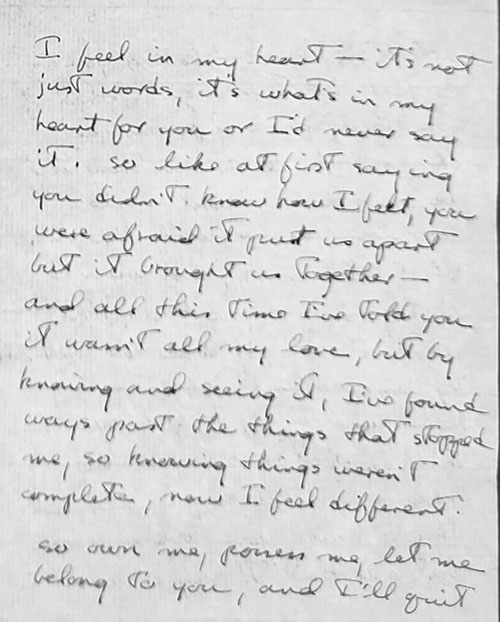 I feel in my heart — it's not
just words, it's what's in my
heart for you or I'd never say
it. so like at first saying
you didn't know how I felt, you
were afraid it put us apart
but it brought us together —
and all this time I've told you
it wasn't all my love, but by
knowing and seeing it, I've found
ways past the things that stopped
me, so knowing things weren't
complete, now I feel different.
so own me, possess me, let me
belong to you, and I'll quit